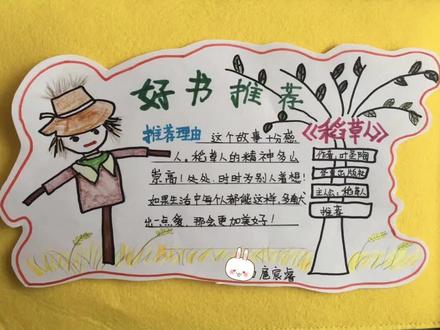 好书推荐
推荐理由 这个故事十分感
人,稻草人的精神多么
崇高!处处,时时为别人着想!
如果生活中每个人都能这样,多献
出一点爱,那会更加美好!
《稻草人》
作者:叶圣陶
出版社
主人公:稻草人
推荐
扈宸睿